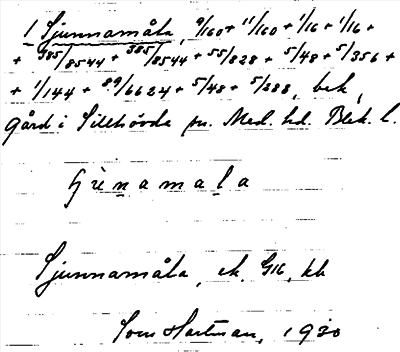 1 Sjunnamåla, 9/160 + 11/160 + 1/16 + 1/16 +
+ 385/8544 + 385/8544 + 55/828 + 5/48 + 5/356 +
+ 1/144 + 89/6624 + 5/48 + 5/288, bek,
gård i Sillhövda sn. Med. hd. Blek. l.
Sjunnamåla, ek. G16, kb
Sven Hartman, 1930